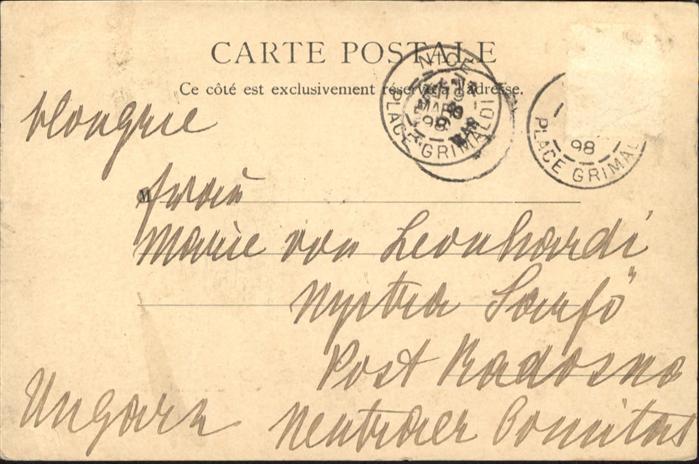 CARTE POSTALE
Ce côté est exclusivement réservé à l'adresse.
NICE
PLACE GRIMALDI
MARS
98
98
PLACE GRIMAL
Hongrie
M
Frau
Marie von Leonhardi
Nyitra Sarfö
Post Radosna
Neutraer Comitat
Ungarn